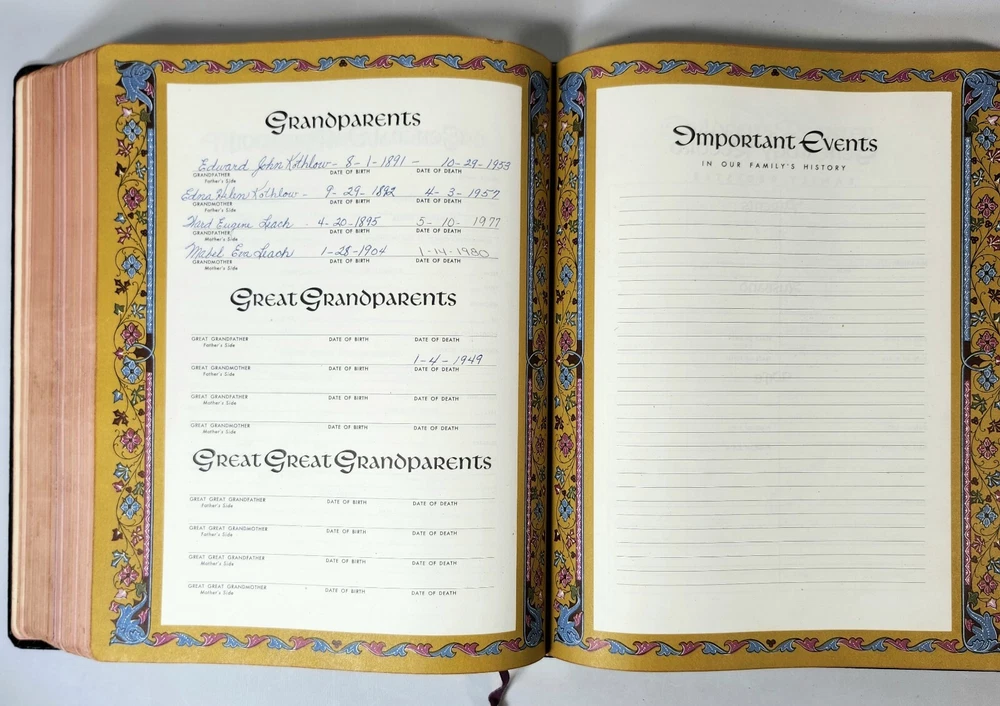 Grandparents
Edward John Kothlow - 8-1-1891 - 10-29-1953
GRANDFATHER DATE OF BIRTH DATE OF DEATH
Father's Side
Edna Helen Kothlow - 9-29-1892 4-3-1957
GRANDMOTHER DATE OF BIRTH DATE OF DEATH
Father's Side
Ward Eugene Leach - 4-20-1895 5-10-1977
GRANDFATHER DATE OF BIRTH DATE OF DEATH
Mother's Side
Mabel Eva Leach 1-28-1904 1-14-1980
GRANDMOTHER DATE OF BIRTH DATE OF DEATH
Mother's Side
Great Grandparents
GREAT GRANDFATHER DATE OF BIRTH DATE OF DEATH
Father's Side
1-4-1949
GREAT GRANDMOTHER DATE OF BIRTH DATE OF DEATH
Father's Side
GREAT GRANDFATHER DATE OF BIRTH DATE OF DEATH
Mother's Side
GREAT GRANDMOTHER DATE OF BIRTH DATE OF DEATH
Mother's Side
Great Great Grandparents
GREAT GREAT GRANDFATHER DATE OF BIRTH DATE OF DEATH
Father's Side
GREAT GREAT GRANDMOTHER DATE OF BIRTH DATE OF DEATH
Father's Side
GREAT GREAT GRANDFATHER DATE OF BIRTH DATE OF DEATH
Mother's Side
GREAT GREAT GRANDMOTHER DATE OF BIRTH DATE OF DEATH
Mother's Side
Important Events
IN OUR FAMILY'S HISTORY